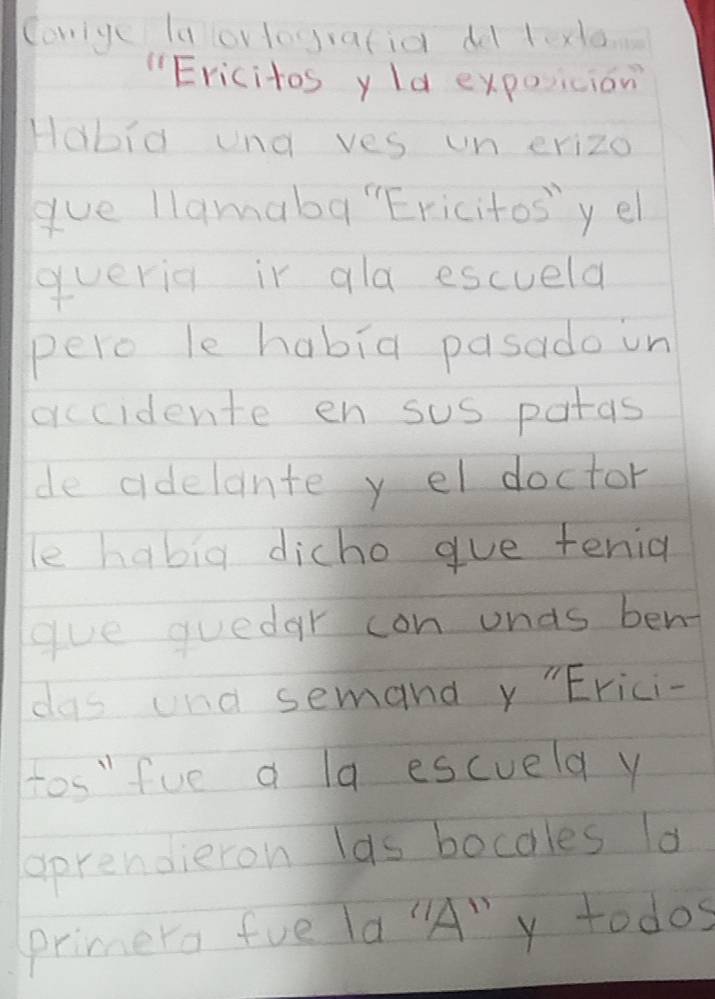 Corrige la ortografía del texto
"Ericitos y la exposición"
Había una ves un erizo
que llamaba "Ericitos" y el
queria ir ala escuela
pero le había pasado un
accidente en sus patas
de adelante y el doctor
le habia dicho que tenia
que quedar con unas ben-
das una semana y "Erici-
tos" fue a la escuela y
aprendieron las bocales la
primera fue la "A" y todos